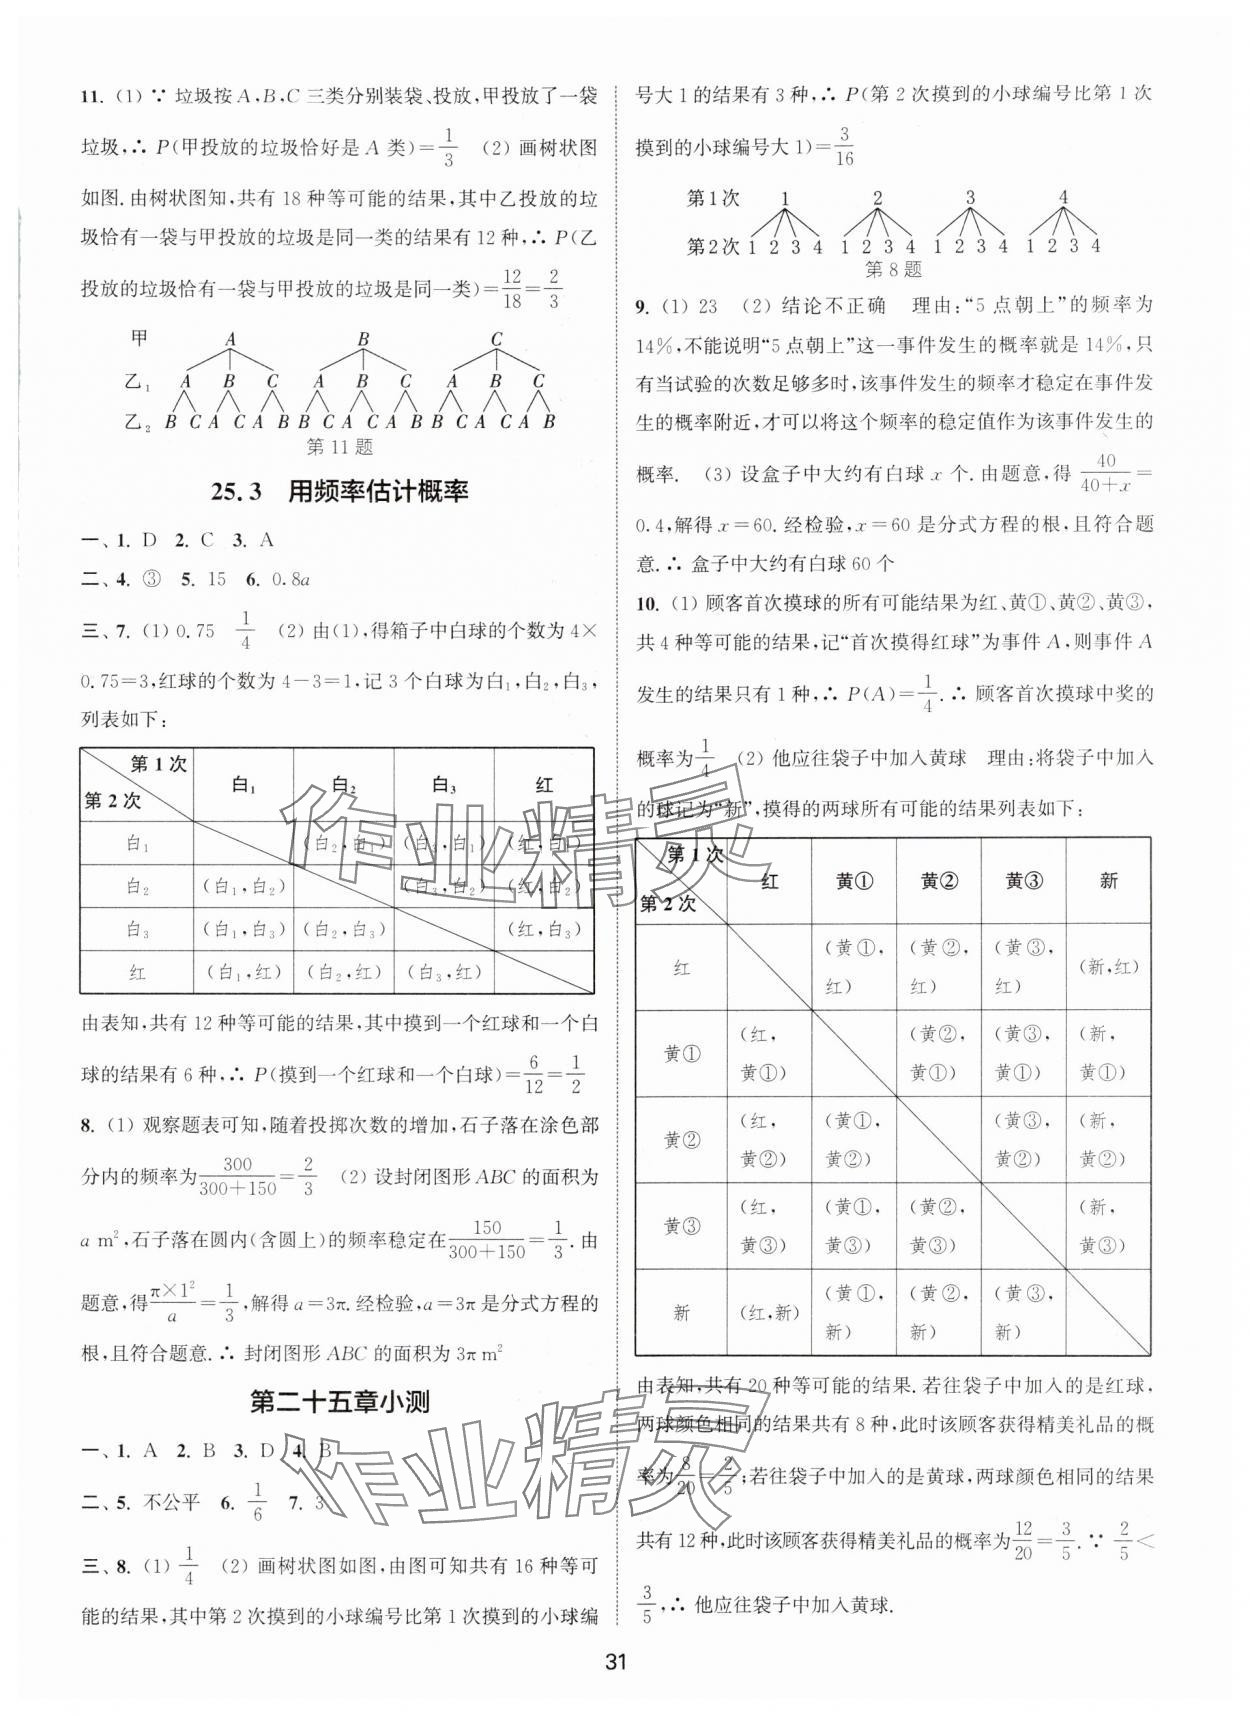 11. (1) ∵ 垃圾按 A,B,C 三类分别装袋、投放,甲投放了一袋
垃圾,∴ P(甲投放的垃圾恰好是 A 类)=1/3 (2) 画树状图
如图.由树状图知,共有 18 种等可能的结果,其中乙投放的垃
圾恰有一袋与甲投放的垃圾是同一类的结果有 12 种,∴ P(乙
投放的垃圾恰有一袋与甲投放的垃圾是同一类)=12/18=2/3
甲 A B C
乙₁ A B C A B C A B C
乙₂ B C A C A B B C A C A B B C A C A B
第 11 题
25.3 用频率估计概率
一、1. D 2. C 3. A
二、4. ③ 5. 15 6. 0.8a
三、7. (1) 0.75 1/4 (2) 由(1),得箱子中白球的个数为 4×
0.75=3,红球的个数为 4-3=1,记 3 个白球为白₁,白₂,白₃,
列表如下:
第 1 次
第 2 次 白₁ 白₂ 白₃ 红
白₁ (白₂,白₁) (白₃,白₁) (红,白₁)
白₂ (白₁,白₂) (白₃,白₂) (红,白₂)
白₃ (白₁,白₃) (白₂,白₃) (红,白₃)
红 (白₁,红) (白₂,红) (白₃,红)
由表知,共有 12 种等可能的结果,其中摸到一个红球和一个白
球的结果有 6 种,∴ P(摸到一个红球和一个白球)=6/12=1/2
8. (1) 观察题表可知,随着投掷次数的增加,石子落在涂色部
分内的频率为300/(300+150)=2/3 (2) 设封闭图形 ABC 的面积为
a m²,石子落在圆内(含圆上)的频率稳定在150/(300+150)=1/3.由
题意,得(π×1²)/a=1/3,解得 a=3π.经检验,a=3π 是分式方程的
根,且符合题意.∴ 封闭图形 ABC 的面积为 3π m²
第二十五章小测
一、1. A 2. B 3. D 4. B
二、5. 不公平 6. 1/6 7. 3
三、8. (1) 1/4 (2) 画树状图如图,由图可知共有 16 种等可
能的结果,其中第 2 次摸到的小球编号比第 1 次摸到的小球编
号大 1 的结果有 3 种,∴ P(第 2 次摸到的小球编号比第 1 次
摸到的小球编号大 1)=3/16
第 1 次 1 2 3 4
第 2 次 1 2 3 4 1 2 3 4 1 2 3 4 1 2 3 4
第 8 题
9. (1) 23 (2) 结论不正确 理由:“5 点朝上”的频率为
14%,不能说明“5 点朝上”这一事件发生的概率就是 14%,只
有当试验的次数足够多时,该事件发生的频率才稳定在事件发
生的概率附近,才可以将这个频率的稳定值作为该事件发生的
概率. (3) 设盒子中大约有白球 x 个.由题意,得 40/(40+x)=
0.4,解得 x=60.经检验,x=60 是分式方程的根,且符合题
意.∴ 盒子中大约有白球 60 个
10. (1) 顾客首次摸球的所有可能结果为红、黄①、黄②、黄③,
共 4 种等可能的结果,记“首次摸得红球”为事件 A,则事件 A
发生的结果只有 1 种,∴ P(A)=1/4.∴ 顾客首次摸球中奖的
概率为1/4 (2) 他应往袋子中加入黄球 理由:将袋子中加入
的球记为“新”,摸得的两球所有可能的结果列表如下:
第 1 次
第 2 次 红 黄① 黄② 黄③ 新
红 (黄①,红) (黄②,红) (黄③,红) (新,红)
黄① (红,黄①) (黄②,黄①) (黄③,黄①) (新,黄①)
黄② (红,黄②) (黄①,黄②) (黄③,黄②) (新,黄②)
黄③ (红,黄③) (黄①,黄③) (黄②,黄③) (新,黄③)
新 (红,新) (黄①,新) (黄②,新) (黄③,新)
由表知,共有 20 种等可能的结果.若往袋子中加入的是红球,
两球颜色相同的结果共有 8 种,此时该顾客获得精美礼品的概
率为8/20=2/5;若往袋子中加入的是黄球,两球颜色相同的结果
共有 12 种,此时该顾客获得精美礼品的概率为12/20=3/5.∵ 2/5<
3/5,∴ 他应往袋子中加入黄球.
作业精灵
作业精灵
31